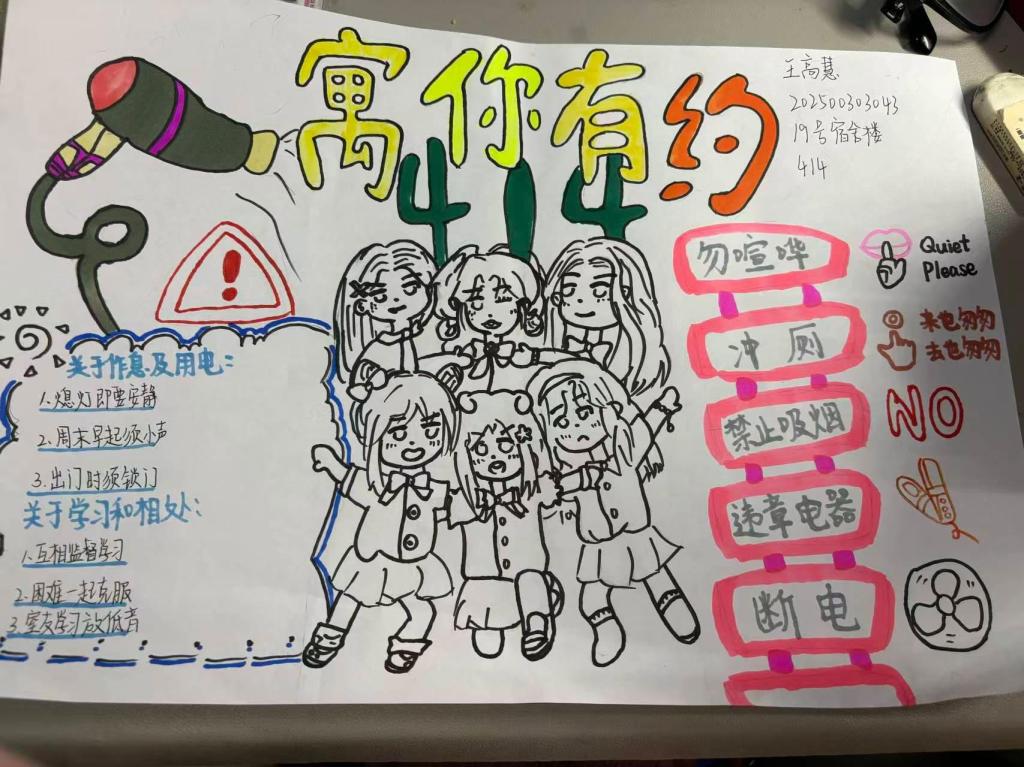 寓你有约
414
王高慧
202500303043
19号宿舍楼
414
关于作息及用电:
1.熄灯即要安静
2.周末早起须小声
3.出门时须锁门
关于学习和相处:
1.互相监督学习
2.困难一起克服
3.室友学习放低音
勿喧哗
Quiet
Please
冲厕
来也匆匆
去也匆匆
禁止吸烟
NO
违章电器
断电